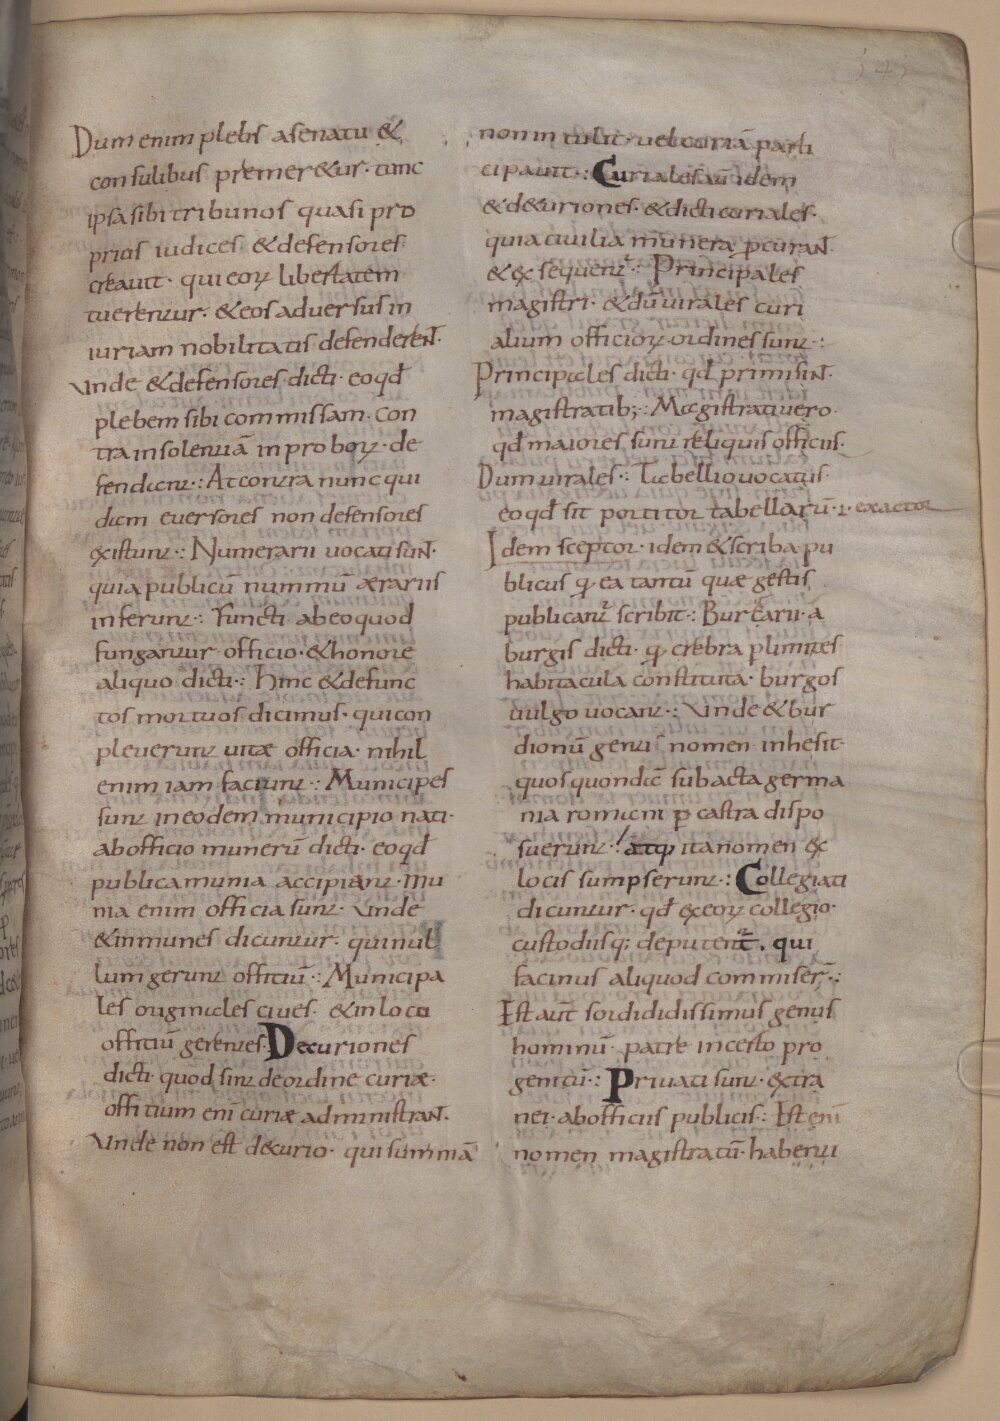 Dum enim plebs a senatu &
consulibus premer&ur · tunc
ipsa sibi tribunos quasi pro
prios iudices & defensores
creauit · qui eoꝝ libertatem
tuerentur · & eos aduersus in
iuriam nobilitatis defenderent ·
Vnde & defensores dicti · eo qđ
plebem sibi commissam · con
tra insolentiā inproboꝝ · de
fendant :· At contra nunc qui
dam euersores non defensores
existunt :· Numerarii uocati sunt ·
quia publicū nummū ærariis
inferunt :· Functi ab eo quod
fungantur officio · & honore
aliquo dicti :· Hinc & defunc
tos mortuos dicimus · qui con
pleuerunt uitæ officia · nihil
enim iam faciunt :· Municipes
sunt in eodem municipio nati ·
ab officio munerū dicti · eo qđ
publica munia accipiant · Mu
nia enim officia sunt · Vnde
& inmunes dicuntur · qui nul
lum gerunt offitiū :· Municipa
les originales ciues · & in loco
offitiū gerentes · Decuriones
dicti · quod sint de ordine curiæ ·
offitium enī curiæ administrant ·
Vnde non est decurio · qui summā
non intulit · uel curiā parti
cipauit :· Curiales aū idem
& decuriones · & dicti curiales ·
quia ciuilia munera ꝓcurant ·
& exsequent᷑ :· Principales
magistri · & duūirales curi
alium officioꝝ · ordines sunt :·
Principales dicti · qđ primi sint ·
magistratib; :· Magistrati uero ·
qđ maiores sunt reliquis officiis ·
Dumuirales :· Tabellio uocatus ·
eo qđ sit portitor tabellarū · ł · exactor
Idem sceptor · idem & scriba pu
blicus ꝙ ea tantū quæ gestis
publicant᷑ scribit :· Burgarii · a
burgis dicti · ꝙ crebra ꝑ limites
habitacula constituta · burgos
uulgo uocant :· Vnde & bur
dionū genti nomen inhesit ·
quos quondā subacta germa
nia romani ꝑ castra dispo
suerunt · atq; ita nomen ex
locis sumpserunt :· Collegiati
dicuntur · qđ ex eoꝝ collegio ·
custodiisq; deputent᷑ · qui
facinus aliquod commiser̄ :·
Est aūt sordididissimus genus
hominū · patre incerto pro
genitū :· Priuati sunt · extra
nei · ab officiis publicis :· Est enī
nomen magistratū · habenti